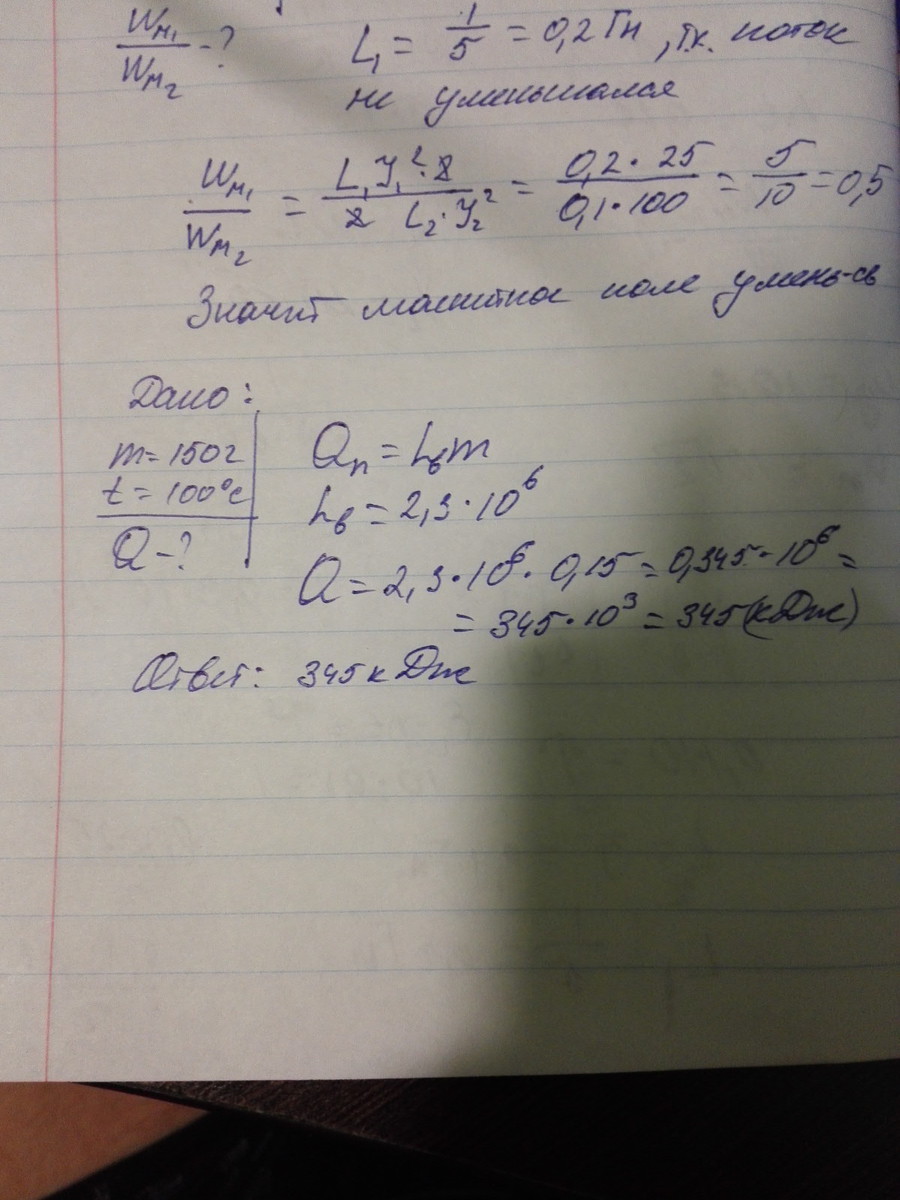 Wм₁/Wм₂ - ? L₁ = 1/5 = 0,2 Гн, т.к. поток
не уменьшался
Wм₁/Wм₂ = L₁J₁²·2/2 L₂·J₂² = 0,2·25/0,1·100 = 5/10 = 0,5
Значит магнитное поле умень-сь
Дано:
m = 150г
t = 100°c
Q - ?
Qп = Lвm
Lв = 2,3·10⁶
Q = 2,3·10⁶·0,15 = 0,345·10⁶ =
= 345·10³ = 345(кДж)
Ответ: 345 кДж